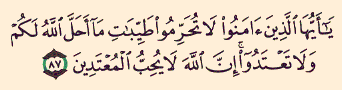 يَٰٓأَيُّهَا ٱلَّذِينَ ءَامَنُوا۟ لَا تُحَرِّمُوا۟ طَيِّبَٰتِ مَآ أَحَلَّ ٱللَّهُ لَكُمْ
وَلَا تَعْتَدُوٓا۟ ۚ إِنَّ ٱللَّهَ لَا يُحِبُّ ٱلْمُعْتَدِينَ ٨٧